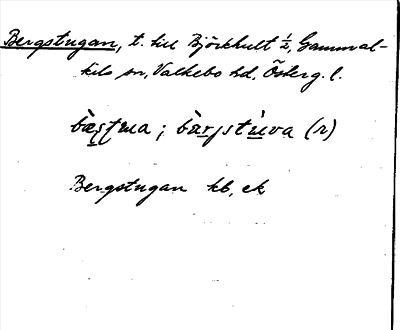 Bergstugan, t. till Björkhult ½, Gammal-
kils sn, Valkebo hd, Österg. l.
bæ̀ștɯa ; bàrʃstùva (r)
Bergstugan kb, ek